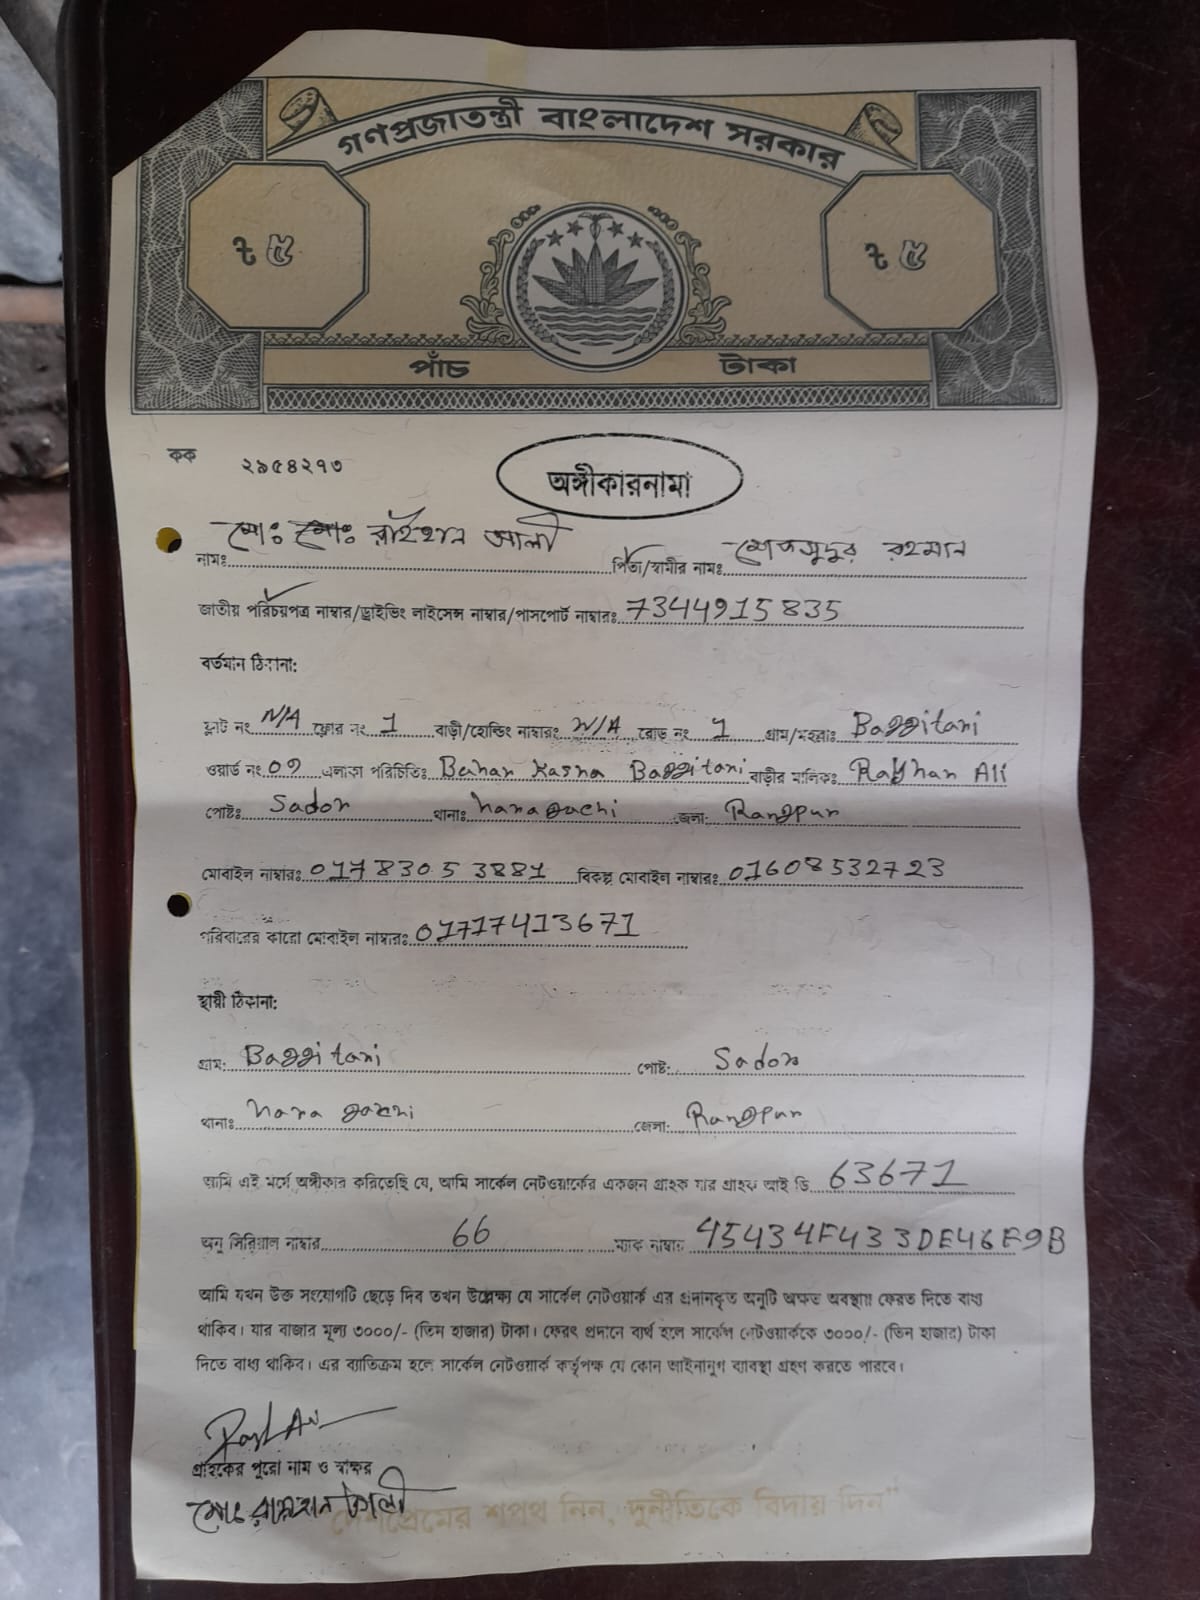 গণপ্রজাতন্ত্রী বাংলাদেশ সরকার
৳ ৫ ৳ ৫
পাঁচ টাকা
কক ২৯৫৪২৭৩
অঙ্গীকারনামা
নামঃ মোঃ রাইহান আলী পিতা/স্বামীর নামঃ মোকসুদুর রহমান
জাতীয় পরিচয়পত্র নাম্বার/ড্রাইভিং লাইসেন্স নাম্বার/পাসপোর্ট নাম্বারঃ 7344915835
বর্তমান ঠিকানা:
ফ্লাট নং N/A ফ্লোর নং 1 বাড়ী/হোল্ডিং নাম্বারঃ N/A রোড নং 1 গ্রাম/মহল্লাঃ Baggitari
ওয়ার্ড নং 09 এলাকা পরিচিতিঃ Bahar Kasna Baggitari বাড়ীর মালিকঃ Rayhan Ali
পোষ্টঃ Sador থানাঃ haragachi জেলা: Rangpur
মোবাইল নাম্বারঃ 01783053881 বিকল্প মোবাইল নাম্বারঃ 01608532723
পরিবারের কারো মোবাইল নাম্বারঃ 01717413671
স্থায়ী ঠিকানা:
গ্রাম: Baggitari পোষ্ট: Sador
থানাঃ hara gachi জেলা: Rangpur
আমি এই মর্মে অঙ্গীকার করিতেছি যে, আমি সার্কেল নেটওয়ার্কের একজন গ্রাহক যার গ্রাহক আই ডি 63671
অনু সিরিয়াল নাম্বার 66 ম্যাক নাম্বার 45434F433DE46E9B
আমি যখন উক্ত সংযোগটি ছেড়ে দিব তখন উল্লেক্ষ্য যে সার্কেল নেটওয়ার্ক এর প্রদানকৃত অনুটি অক্ষত অবস্থায় ফেরত দিতে বাধ্য
থাকিব। যার বাজার মূল্য ৩০০০/- (তিন হাজার) টাকা। ফেরৎ প্রদানে ব্যর্থ হলে সার্কেল নেটওয়ার্ককে ৩০০০/- (তিন হাজার) টাকা
দিতে বাধ্য থাকিব। এর ব্যাতিক্রম হলে সার্কেল নেটওয়ার্ক কর্তৃপক্ষ যে কোন আইনানুগ ব্যাবস্থা গ্রহণ করতে পারবে।
গ্রাহকের পুরো নাম ও স্বাক্ষর
মোঃ রায়হান আলী
দেশপ্রেমের শপথ নিন, দুর্নীতিকে বিদায় দিন"